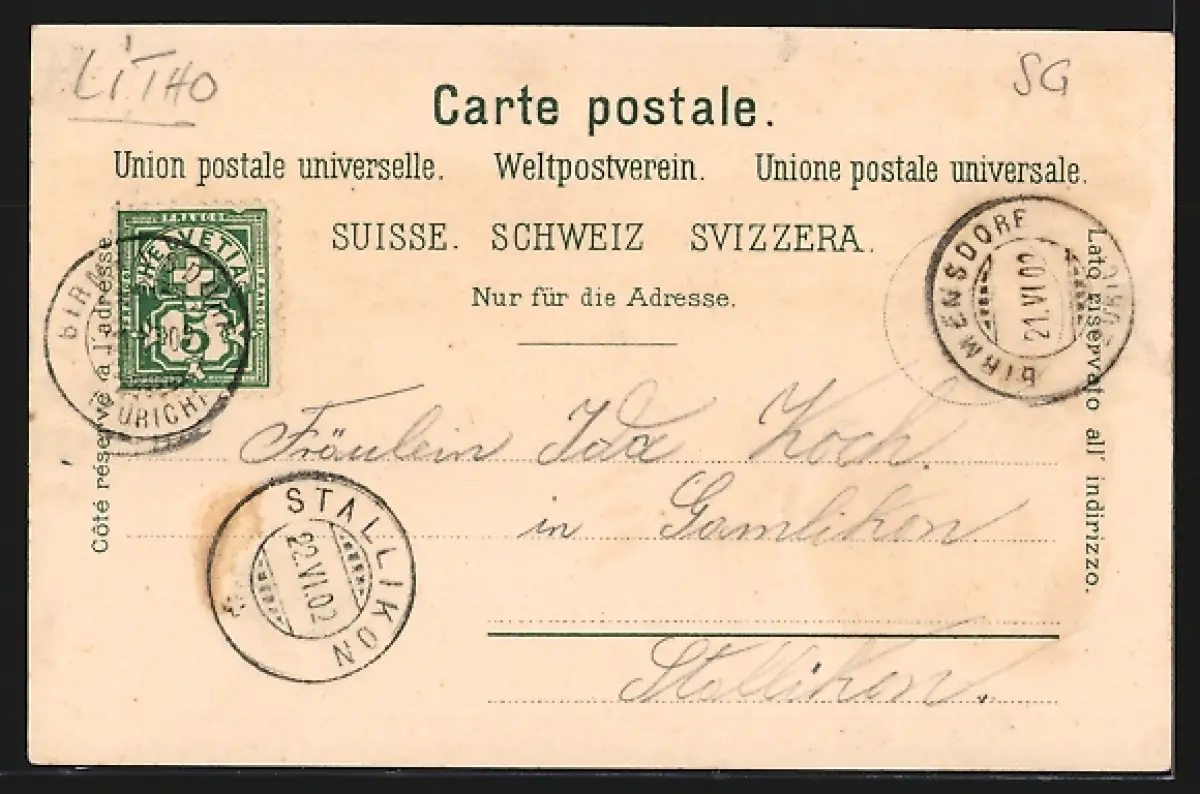 LITHO
SG
Carte postale.
Union postale universelle. Weltpostverein. Unione postale universale.
SUISSE. SCHWEIZ SVIZZERA.
Nur für die Adresse.
Côté réservé à l'adresse.
Lato riservato all' indirizzo.
FRANCO
HELVETIA
5
(ZÜRICH)
BIRMENSDORF
21.VI.02
Fräulein Ida Koch.
in Gamlikon
STALLIKON
22.VI.02
Stallikon.